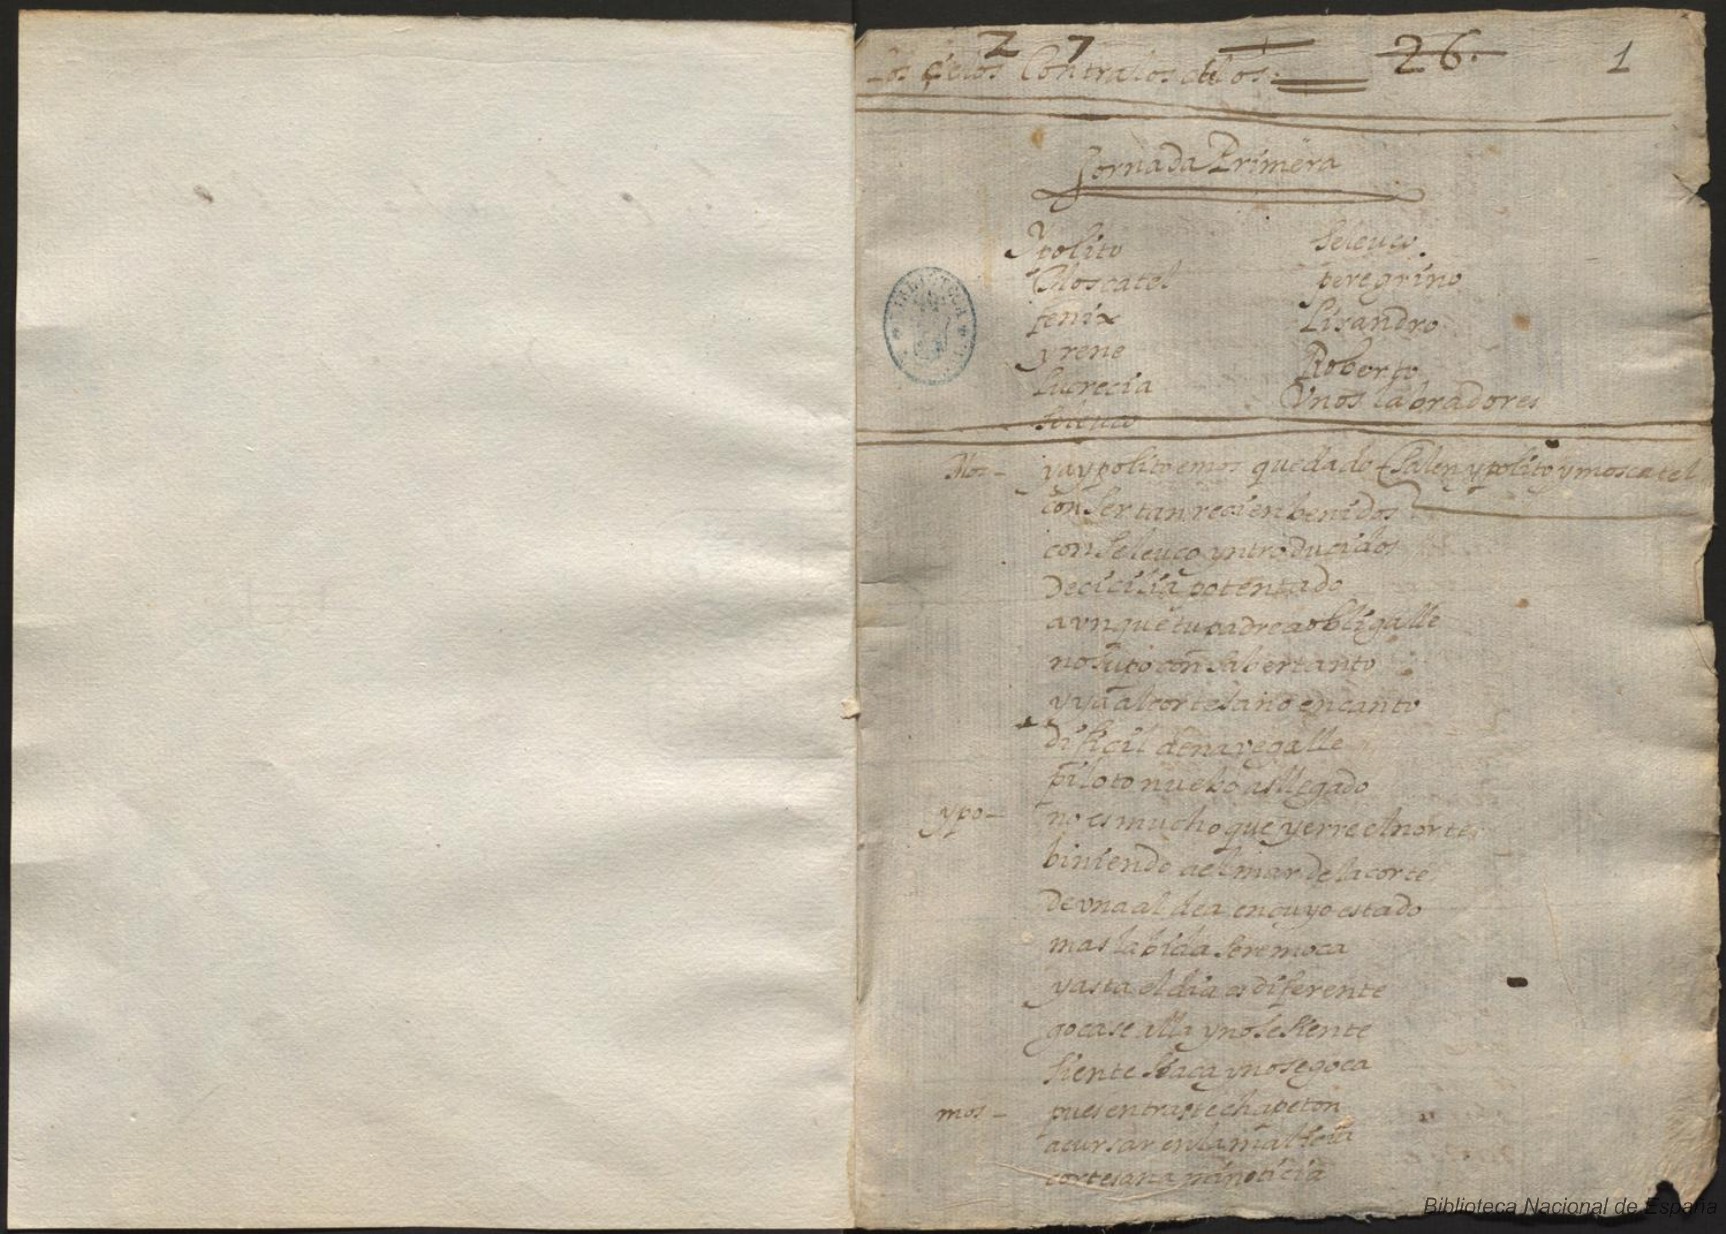 27 26. 1
Los çelos Contra losделos
Jornada Primera
ypolito
Moscatel
fenix
yrene
lucrecia
seleuco
Seleuco
peregrino
Lisandro
Roberto
Vnos labradores
Mos- ya ypolito emos quedado Salen ypolito y moscatel
con ser tan recien benidos
con seleuco yntroducidos
de cicilia potentado
aunque tu padre a obligalle
no supo con saber tanto
y ya al cortesano encanto
dificil de navegalle
piloto nuebo as llegado
ypo- no es mucho que yerre el norte
biniendo a el mar de la corte
de vna aldea en cuyo estado
mas la bida se remoça
y asta el dia es diferente
goçase alla y no se siente
siente se aca y no se goça
mos- pues entraste chapeton
a cursar en la malicia
cortesana mi noticia
BIBLIOTECA
Biblioteca Nacional de España